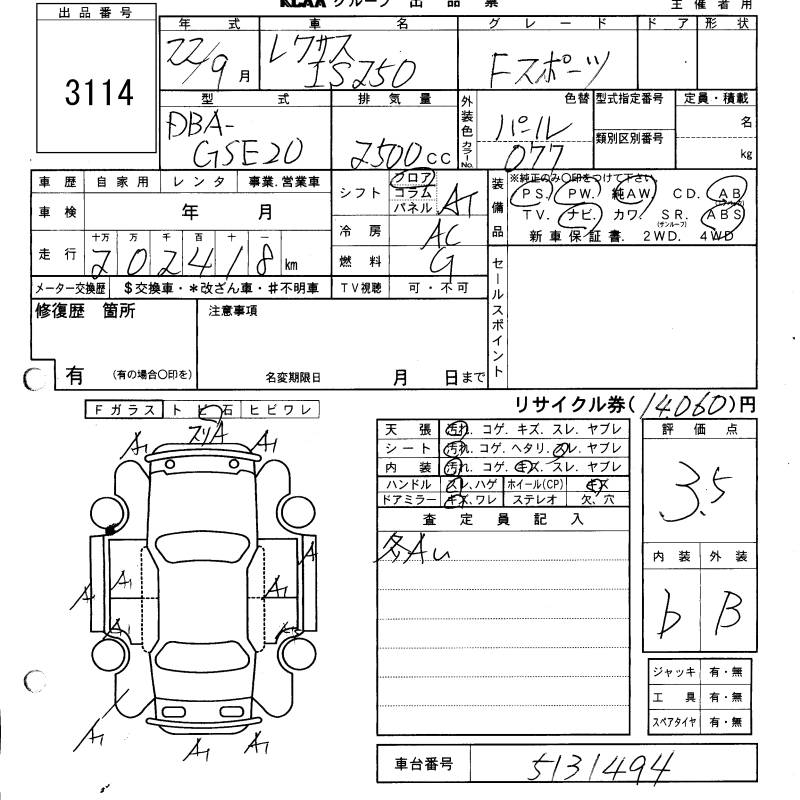 KLAA グループ 出 品 票
主 催 者 用
出 品 番 号
3114
年 式 車 名 グ レ ー ド ド ア 形 状
22/9 月 レクサス IS250 Fスポーツ
型 式 排 気 量 外装色 カラーNo. 色替 型式指定番号 定員・積載
DBA-GSE20 2500 cc パール 077 類別区別番号 名
kg
車 歴 自 家 用 レ ン タ 事業.営業車
車 検 年 月
走 行 十万 万 千 百 十 一
2 0 2 4 1 8 km
メーター交換歴 $交換車・*改ざん車・#不明車
シフト フロア コラム パネル AT
冷 房 AC
燃 料 G
TV視聴 可・不可
装備品 ※純正のみ〇印をつけて下さい
PS. PW. 純AW. CD. AB (エアバック)
TV. ナビ. カワ. SR. (サンルーフ) ABS
新 車 保 証 書. 2WD. 4WD
セールスポイント
修復歴 箇所
有 (有の場合〇印を)
注意事項
名変期限日 月 日まで
リサイクル券(14,060)円
Fガラス ト ビ 石 ヒビワレ
スリA
A1 A1
A1 A1
A A
A1
A1 A1 A1
天 張 汚れ. コゲ. キズ. スレ. ヤブレ
シート 汚れ. コゲ. ヘタリ. スレ. ヤブレ
内 装 汚れ. コゲ. キズ. スレ. ヤブレ
ハンドル スレ、ハゲ ホイール(CP) キズ
ドアミラー キズ、ワレ ステレオ 欠、穴
査 定 員 記 入
多Aい
評 価 点
3.5
内 装 外 装
b B
ジャッキ 有・無
工 具 有・無
スペアタイヤ 有・無
車台番号 5131494